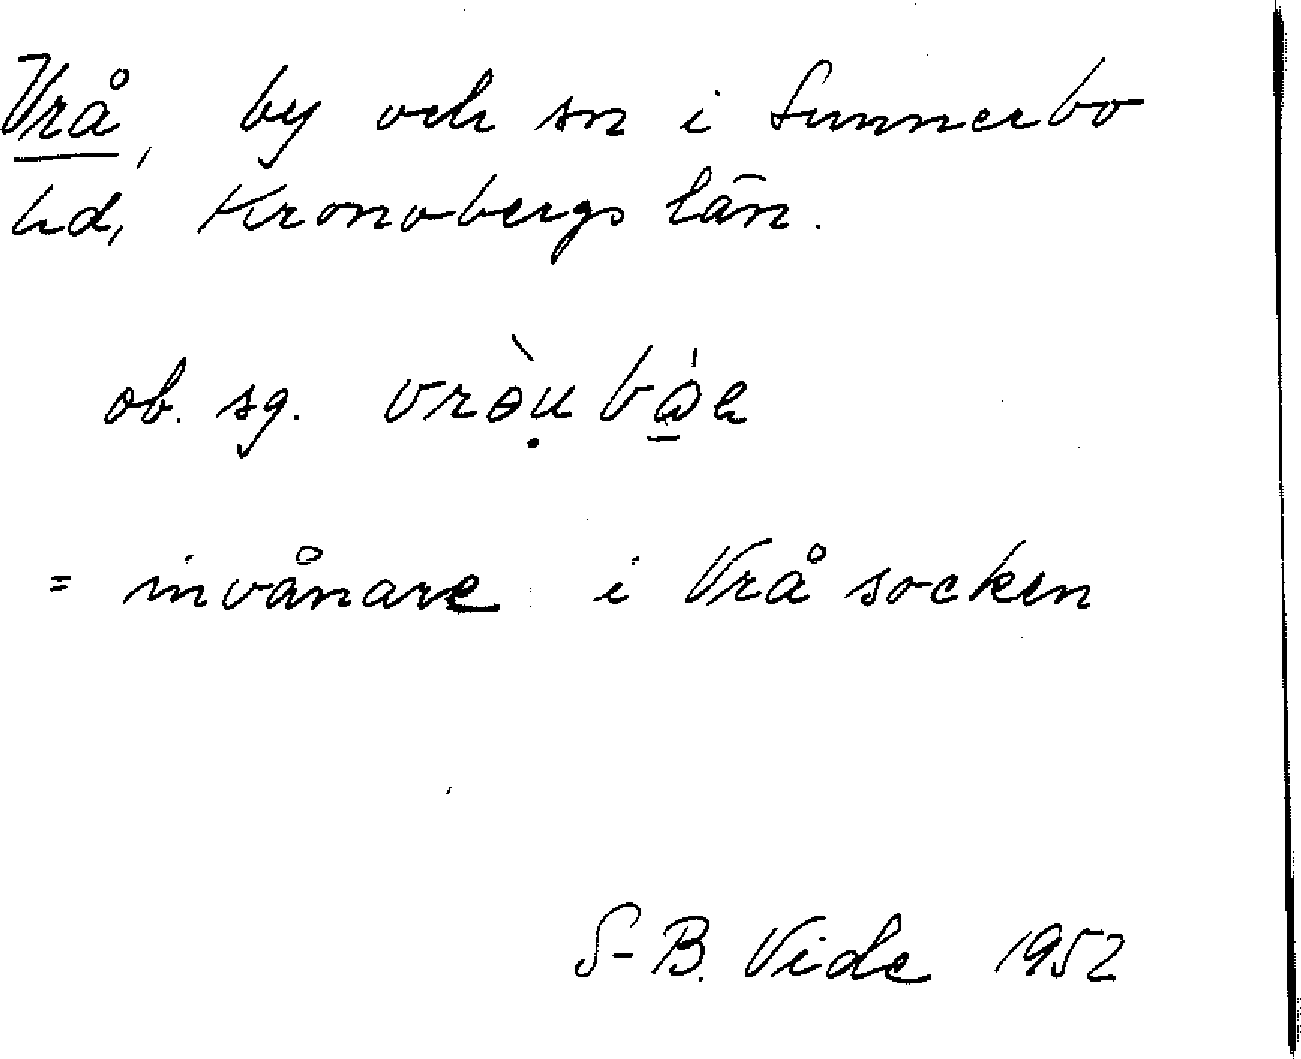 Vrå, by och sn i Sunnerbo
hd, Kronobergs län.
ob. sg.
= invånare i Vrå socken
S-B. Vide 1952